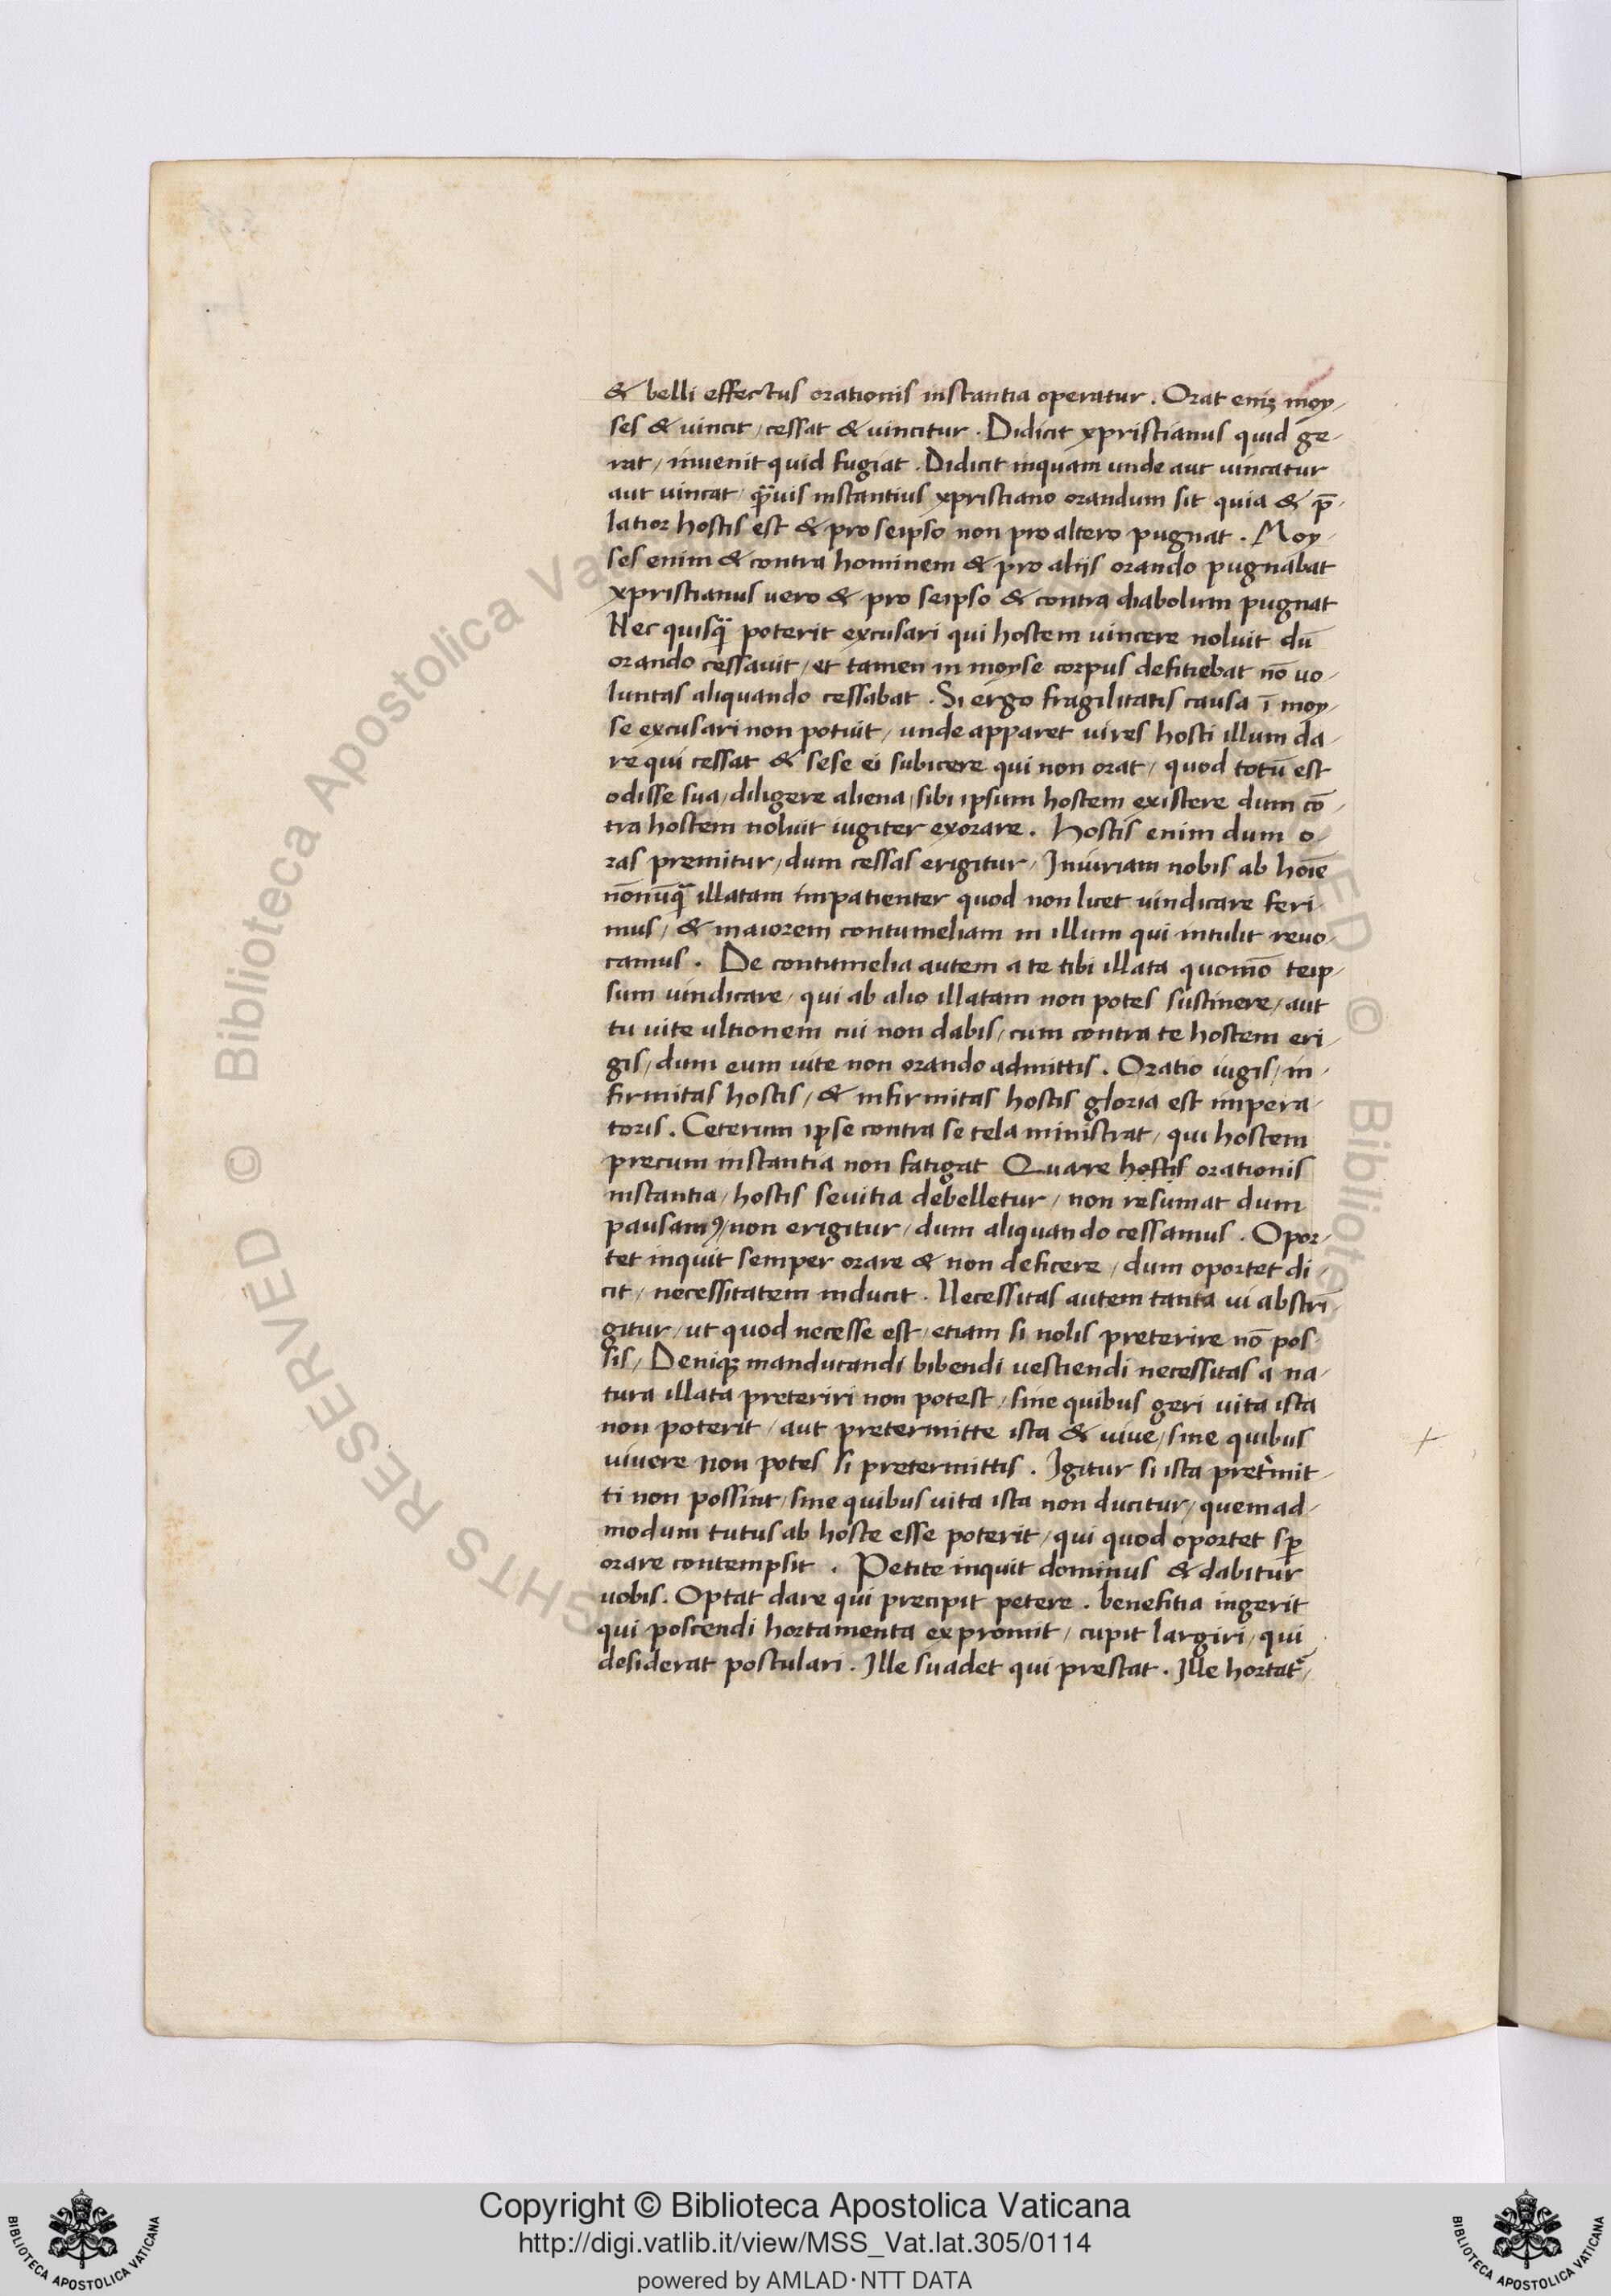 & belli effectus orationis instantia operatur. Orat eniȝ moy/
ses & uincit/ cessat & uincitur. Didicit xpristianus quid ge/
rat/ inuenit quid fugiat. Didicit inquam unde aut uincatur
aut uincat/ q̃uis instantius xpristiano orandum sit quia & p̄/
latior hostis est & pro seipso non pro altero pugnat. Moy/
ses enim & contra hominem & pro alijs orando pugnabat
xpristianus uero & pro seipso & contra diabolum pugnat
Nec quisq̃ poterit excusari qui hostem uincere noluit dū
orando cessauit/ et tamen in moyse corpus defitiebat nō uo/
luntas aliquando cessabat. Si ergo fragilitatis causa ī moy/
se excusari non potuit/ unde apparet uires hosti illum da/
re qui cessat & sese ei subicere qui non orat/ quod totū est
odisse sua/ diligere aliena/ sibi ipsum hostem existere dum cō/
tra hostem noluit iugiter exorare. Hostis enim dum o/
ras premitur/ dum cessas erigitur/ Iniuriam nobis ab hoīe
nōnūq̃ illatam impatienter quod non licet uindicare feri/
mus/ & maiorem contumeliam in illum qui intulit reuo/
camus. De contumelia autem a te tibi illata quomō teip/
sum uindicare/ qui ab alio illatam non potes sustinere/ aut
tu uite ultionem cui non dabis/ cum contra te hostem eri/
gis/ dum eum uite non orando admittis. Oratio iugis/ in/
firmitas hostis/ & infirmitas hostis gloria est impera/
toris. Ceterum ipse contra se tela ministrat/ qui hostem
precum instantia non fatigat Quare hostis orationis
instantia/ hostis seuitia debelletur/ non resumat dum
pausamꝰ/ non erigitur/ dum aliquando cessamus. Opor/
tet inquit semper orare & non deficere/ dum oportet di/
cit/ necessitatem inducit. Necessitas autem tanta ui abstrī/
gitur/ ut quod necesse est/ etiam si nolis preterire nō pos/
sis/ Deniqȝ manducandi bibendi uestiendi necessitas a na/
tura illata preteriri non potest/ sine quibus geri uita ista
non poterit/ aut pretermitte ista & uiue/ sine quibus
uiuere non potes si pretermittis. Igitur si ista pret̉mit/
ti non possint/ sine quibus uita ista non ducitur/ quemad/
modum tutus ab hoste esse poterit/ qui quod oportet sp̄
orare contempsit. Petite inquit dominus & dabitur
uobis. Optat dare qui precipit petere. benefitia ingerit
qui poscendi hortamenta expromit/ cupit largiri/ qui
desiderat postulari. Ille suadet qui prestat. Ille hortat᷑/
Copyright © Biblioteca Apostolica Vaticana
http://digi.vatlib.it/view/MSS_Vat.lat.305/0114
powered by AMLAD·NTT DATA